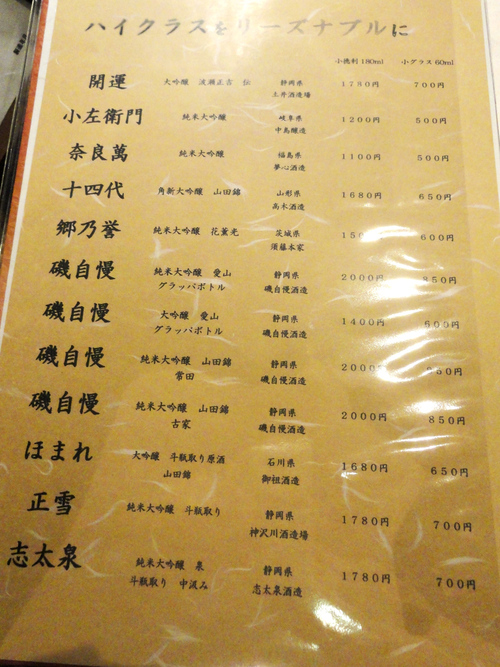 ハイクラスをリーズナブルに
小徳利180ml 小グラス60ml
開運 大吟醸 波瀬正吉 伝 静岡県 土井酒造場 1780円 700円
小左衛門 純米大吟醸 岐阜県 中島醸造 1200円 500円
奈良萬 純米大吟醸 福島県 夢心酒造 1100円 500円
十四代 角新大吟醸 山田錦 山形県 高木酒造 1680円 650円
郷乃誉 純米大吟醸 花薫光 茨城県 須藤本家 600円
磯自慢 純米大吟醸 愛山 グラッパボトル 静岡県 磯自慢酒造 2000円 850円
磯自慢 大吟醸 愛山 グラッパボトル 静岡県 磯自慢酒造 1400円 600円
磯自慢 純米大吟醸 山田錦 常田 静岡県 磯自慢酒造 2000円 850円
磯自慢 純米大吟醸 山田錦 古家 静岡県 磯自慢酒造 2000円 850円
ほまれ 大吟醸 斗瓶取り原酒 山田錦 石川県 御祖酒造 1680円 650円
正雪 純米大吟醸 斗瓶取り 静岡県 神沢川酒造場 1780円 700円
志太泉 純米大吟醸 泉 斗瓶取り 中汲み 静岡県 志太泉酒造 1780円 700円